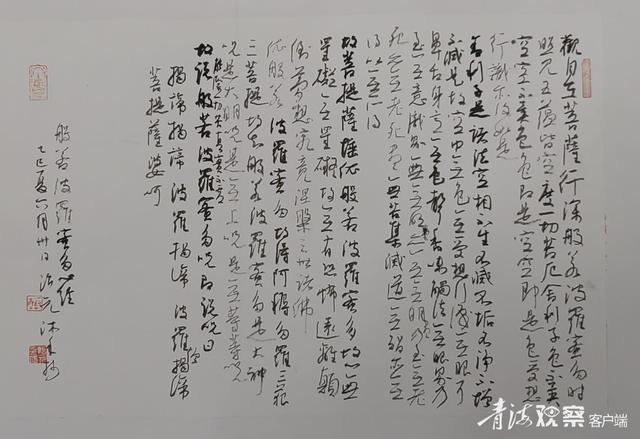 觀自在菩薩行深般若波羅蜜多時
照見五蘊皆空度一切苦厄舍利子色不異
空空不異色色即是空空即是色受想
行識亦復如是
舍利子是諸法空相不生不滅不垢不淨不增
不減是故空中無色無受想行識無眼耳
鼻舌身意無色聲香味觸法無眼界乃
至無意識界無無明亦無無明盡乃至無老
死亦無老死盡無苦集滅道無智亦無
得以無所得
故菩提薩埵依般若波羅蜜多故心無
罣礙無罣礙故無有恐怖遠離顛
倒夢想究竟涅槃三世諸佛
依般若波羅蜜多故得阿耨多羅三藐
三菩提故知般若波羅蜜多是大神
咒是大明咒是無上咒是無等等咒
能除一切苦真實不虛
故說般若波羅蜜多咒即說咒曰
揭諦揭諦 波羅揭諦 波羅僧揭諦
菩提薩婆訶
般若波羅蜜多心經
乙巳夏六月廿日
沐手抄
青海观察 客户端